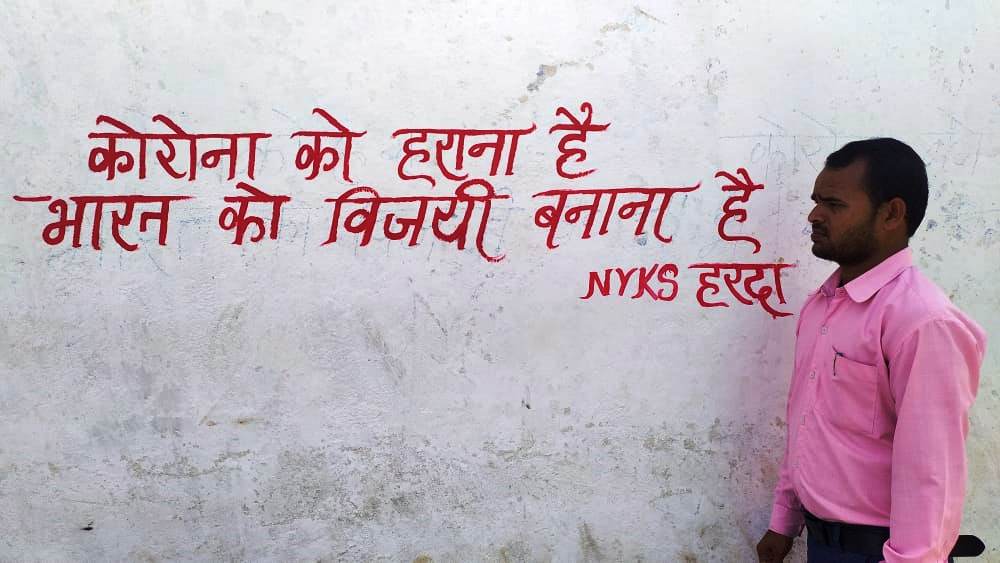 कोरोना को हराना है
भारत को विजयी बनाना है
NYKS हरदा